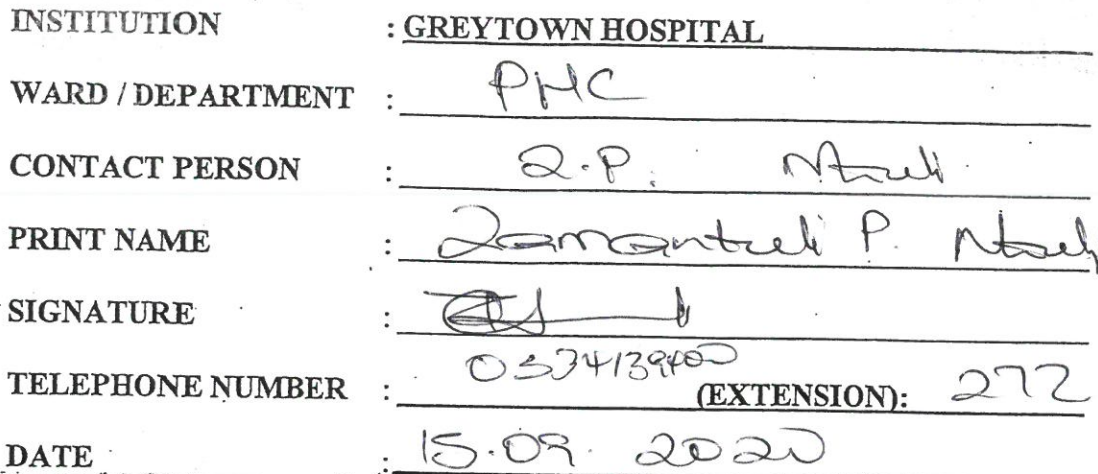 INSTITUTION : GREYTOWN HOSPITAL
WARD / DEPARTMENT : PHC
CONTACT PERSON : Z.P. Ntuli
PRINT NAME : Zamantuli P. Ntuli
SIGNATURE :
TELEPHONE NUMBER : 0334139400 (EXTENSION): 272
DATE : 15.09.2020